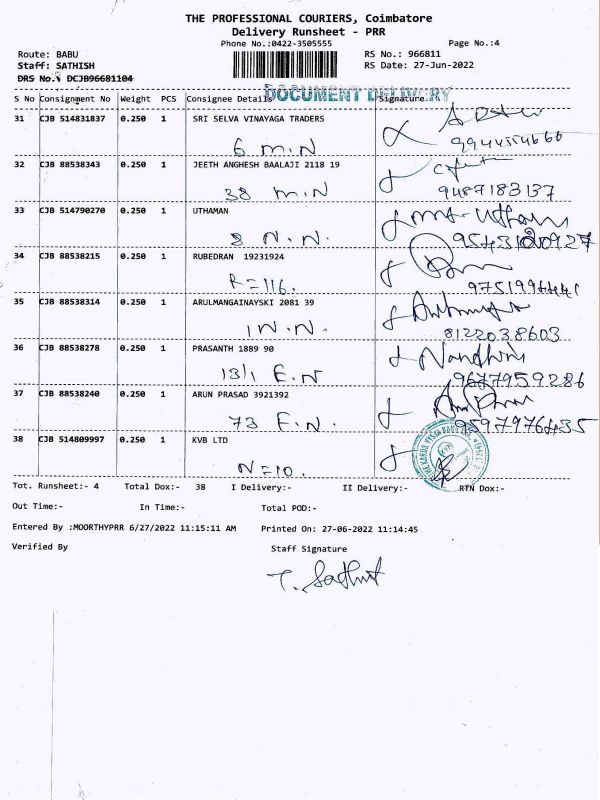 THE PROFESSIONAL COURIERS, Coimbatore
Delivery Runsheet - PRR
Phone No.:0422-3505555 Page No.:4
Route: BABU RS No.: 966811
Staff: SATHISH RS Date: 27-Jun-2022
DRS No.: DCJB96681104
DOCUMENT DELIVERY
S No Consignment No Weight PCS Consignee Details Signature
31 CJB 514831837 0.250 1 SRI SELVA VINAYAGA TRADERS
6 M.N 9944554666
32 CJB 88538343 0.250 1 JEETH ANGHESH BAALAJI 2118 19
38 M.N 9487183137
33 CJB 514790270 0.250 1 UTHAMAN
8 N.N.
34 CJB 88538215 0.250 1 RUBEDRAN 19231924
R=116.
35 CJB 88538314 0.250 1 ARULMANGAINAYSKI 2081 39
1 N.N. 8122038603
36 CJB 88538278 0.250 1 PRASANTH 1889 90 Nandhini
13/1 E.N 9677959286
37 CJB 88538240 0.250 1 ARUN PRASAD 3921392
73 F.N. 9597976435
38 CJB 514809997 0.250 1 KVB LTD
N=10.
Tot. Runsheet:- 4 Total Dox:- 38 I Delivery:- II Delivery:- RTN Dox:-
Out Time:- In Time:- Total POD:-
Entered By :MOORTHYPRR 6/27/2022 11:15:11 AM Printed On: 27-06-2022 11:14:45
Verified By Staff Signature
T. Sathish